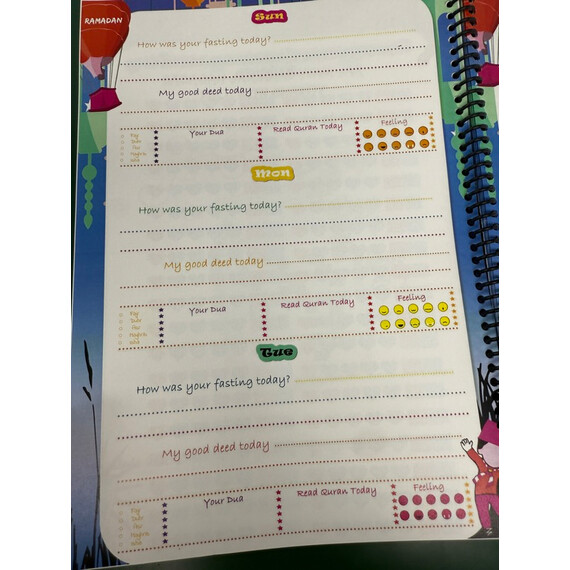 RAMADAN
Sun
How was your fasting today?
My good deed today
Your Dua
Read Quran Today
Feeling
Mon
How was your fasting today?
My good deed today
Your Dua
Read Quran Today
Feeling
Tue
How was your fasting today?
My good deed today
Your Dua
Read Quran Today
Feeling